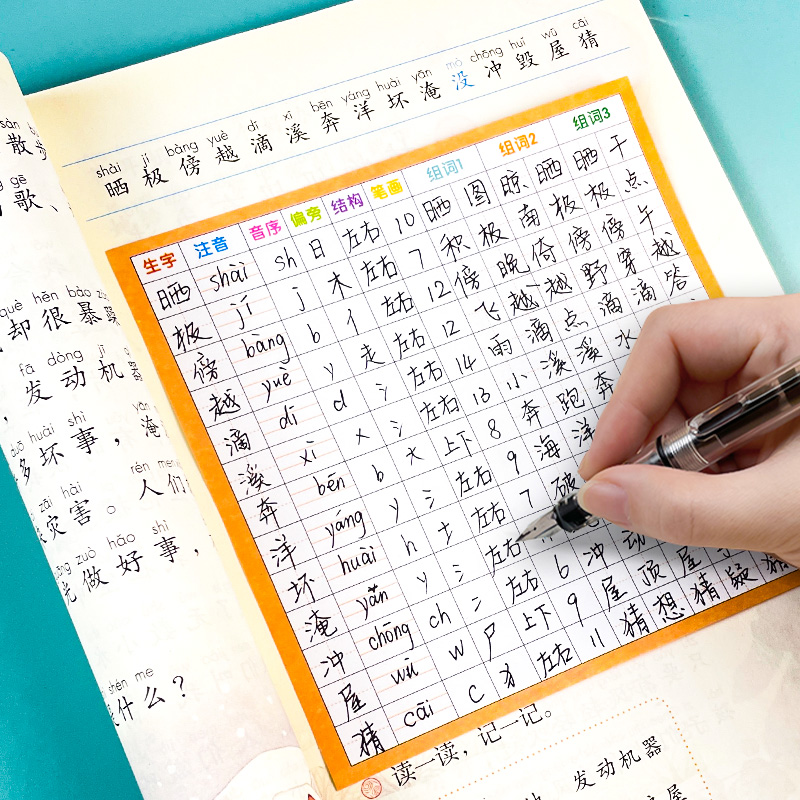 shài jí bàng yuè dī xī bēn yáng huài yān mò chōng huǐ wū cāi
晒 极 傍 越 滴 溪 奔 洋 坏 淹 没 冲 毁 屋 猜
生字 注音 音序 偏旁 结构 笔画 组词1 组词2 组词3
晒 shài sh 日 左右 10 晒图 晾晒 晒干
极 jí j 木 左右 7 积极 南极 极点
傍 bàng b 亻 左右 12 傍晚 倚傍 傍午
越 yuè y 走 左右 12 飞越 越野 穿越
滴 dī d 氵 左右 14 雨滴 点滴 滴答
溪 xī x 氵 左右 13 小溪 溪水
奔 bēn b 大 上下 8 奔跑 奔
洋 yáng y 氵 左右 9 海洋
坏 huài h 土 左右 7 破
淹 yān y 氵 左右
冲 chōng ch 冫 左右 6 冲动
屋 wū w 尸 上下 9 屋顶 屋
猜 cāi c 犭 左右 11 猜想 猜疑 猜
sàn
散
gē
歌、
què hěn bào
却 很 暴
fā dòng jī
，发 动 机 器
huài shì
多 坏 事，淹
zāi hài rén men
灾 害 。 人 们
zuò hǎo shì
做 好 事，
shén me
什 么？
读一读，记一记。
发动机器
屋